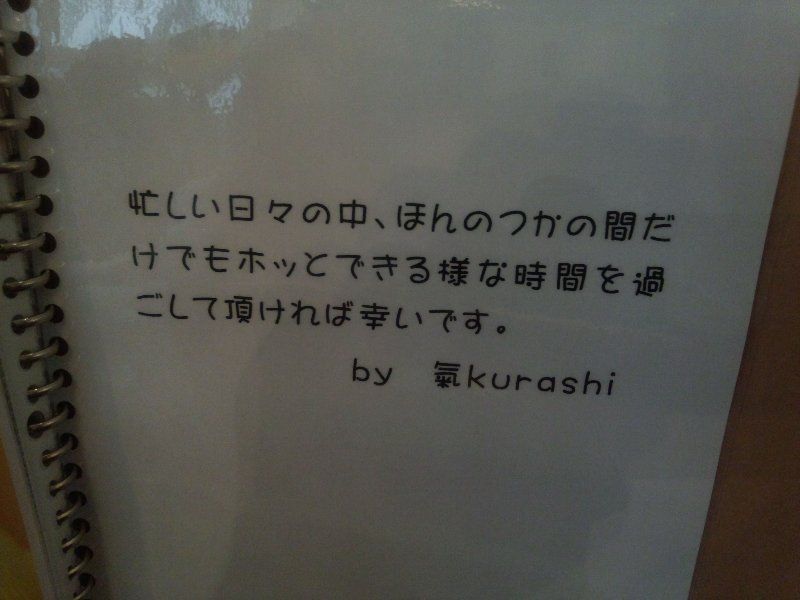 忙しい日々の中、ほんのつかの間だ
けでもホッとできる様な時間を過
ごして頂ければ幸いです。
by 氣kurashi